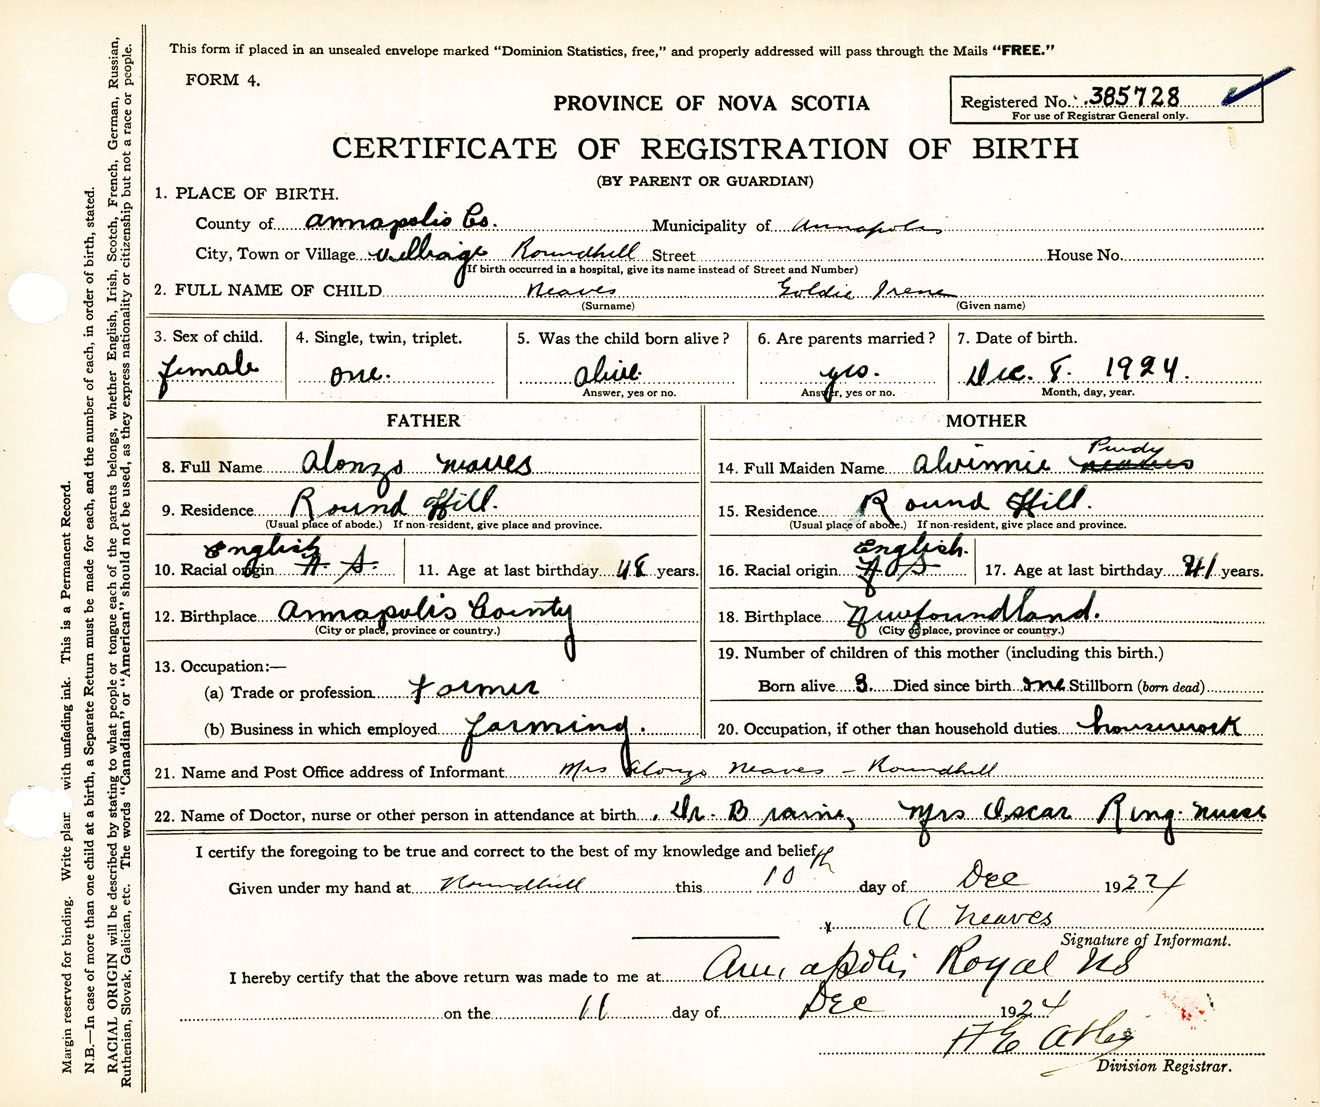 This form if placed in an unsealed envelope marked "Dominion Statistics, free," and properly addressed will pass through the Mails "FREE."
FORM 4.
PROVINCE OF NOVA SCOTIA
Registered No. 385728
For use of Registrar General only.
CERTIFICATE OF REGISTRATION OF BIRTH
(BY PARENT OR GUARDIAN)
1. PLACE OF BIRTH.
County of Annapolis Co. Municipality of Annapolis
City, Town or Village village Roundhill Street House No.
(If birth occurred in a hospital, give its name instead of Street and Number)
2. FULL NAME OF CHILD Neaves Goldie Irene
(Surname) (Given name)
3. Sex of child. 4. Single, twin, triplet. 5. Was the child born alive? 6. Are parents married? 7. Date of birth.
female one. alive yes. Dec. 8. 1924.
Answer, yes or no. Answer, yes or no. Month, day, year.
FATHER MOTHER
Purdy
8. Full Name Alonzo Neaves 14. Full Maiden Name Alvinnie Neaves
9. Residence Round Hill. 15. Residence Round Hill.
(Usual place of abode.) If non-resident, give place and province. (Usual place of abode.) If non-resident, give place and province.
English English.
10. Racial origin N S. 11. Age at last birthday 48 years. 16. Racial origin N S 17. Age at last birthday 41 years.
12. Birthplace Annapolis County 18. Birthplace Newfoundland.
(City or place, province or country.) (City or place, province or country.)
13. Occupation:— 19. Number of children of this mother (including this birth.)
(a) Trade or profession Farmer Born alive 3. Died since birth one Stillborn (born dead)
(b) Business in which employed farming. 20. Occupation, if other than household duties housework
21. Name and Post Office address of Informant Mrs Alonzo Neaves – Roundhill
22. Name of Doctor, nurse or other person in attendance at birth Dr. Braine, Mrs Oscar Ring. nurse
I certify the foregoing to be true and correct to the best of my knowledge and belief,
Given under my hand at Roundhill this 10th day of Dec 1924
x A Neaves
Signature of Informant.
I hereby certify that the above return was made to me at Annapolis Royal NS
on the 11 day of Dec 1924
Division Registrar.
Margin reserved for binding. Write plain with unfading ink. This is a Permanent Record.
N.B.—In case of more than one child at a birth, a Separate Return must be made for each, and the number of each, in order of birth, stated.
RACIAL ORIGIN will be described by stating to what people or tongue each of the parents belongs, whether English, Irish, Scotch, French, German, Russian,
Ruthenian, Slovak, Galician, etc. The words "Canadian" or "American" should not be used, as they express nationality or citizenship but not a race or people.